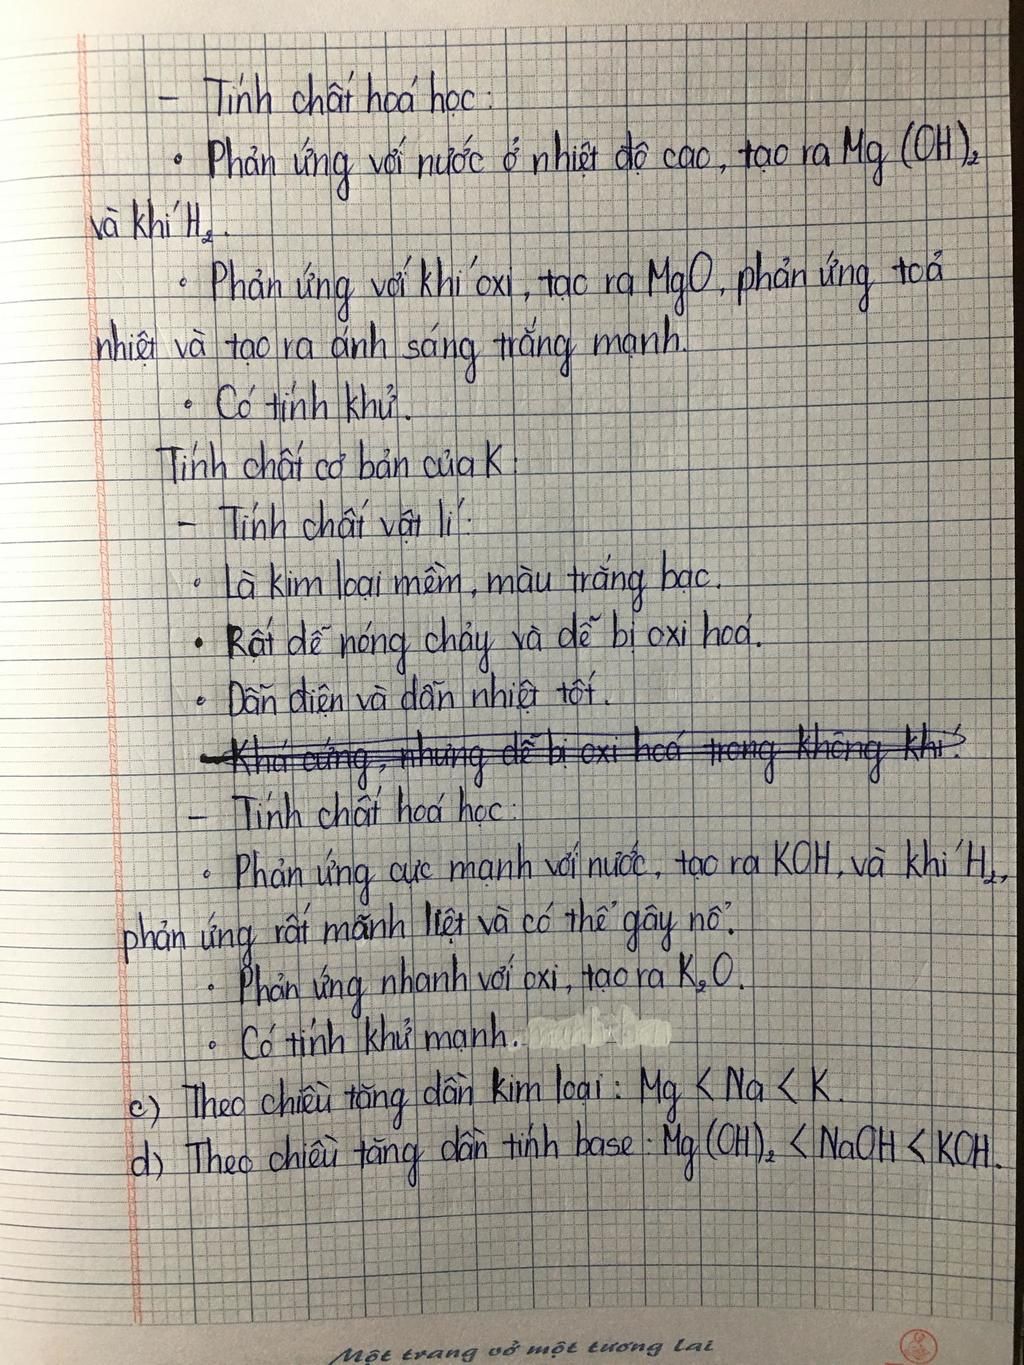 - Tính chất hoá học:
• Phản ứng với nước ở nhiệt độ cao, tạo ra Mg(OH)₂
và khí H₂.
• Phản ứng với khí oxi, tạo ra MgO, phản ứng toả
nhiệt và tạo ra ánh sáng trắng mạnh.
• Có tính khử.
Tính chất cơ bản của K:
- Tính chất vật lí:
• Là kim loại mềm, màu trắng bạc.
• Rất dễ nóng chảy và dễ bị oxi hoá.
• Dẫn điện và dẫn nhiệt tốt.
- Khá cứng, nhưng dễ bị oxi hoá trong không khí.
- Tính chất hoá học:
• Phản ứng cực mạnh với nước, tạo ra KOH, và khí H₂,
phản ứng rất mãnh liệt và có thể gây nổ.
• Phản ứng nhanh với oxi, tạo ra K₂O.
• Có tính khử mạnh.
c) Theo chiều tăng dần kim loại: Mg < Na < K.
d) Theo chiều tăng dần tính base: Mg(OH)₂ < NaOH < KOH.
Một trang vở một tương lai